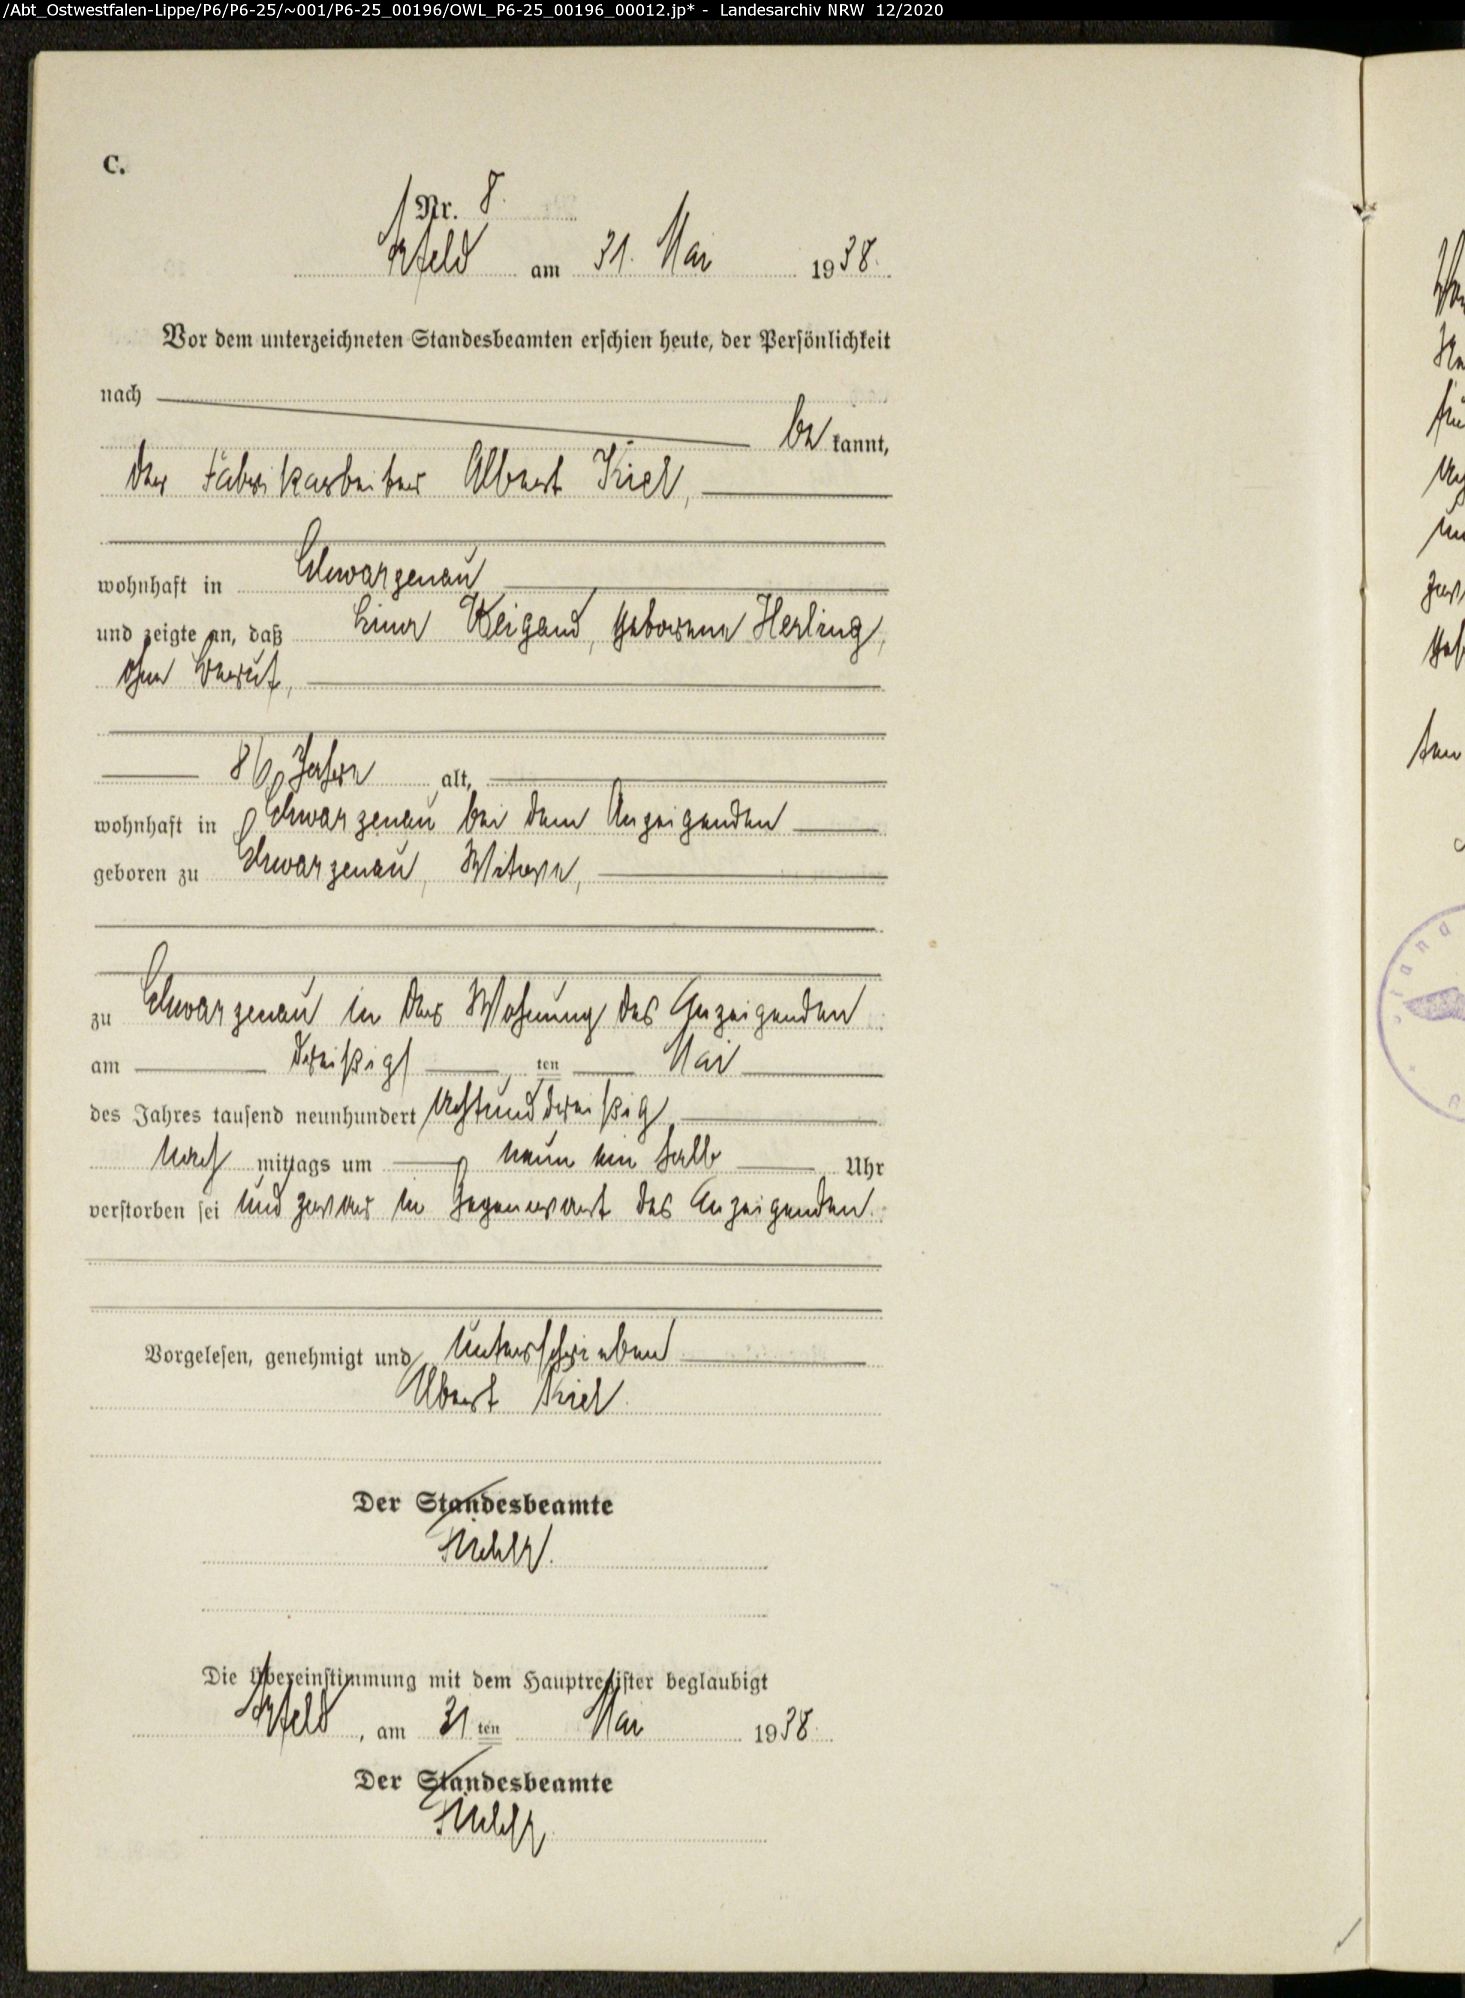 /Abt_Ostwestfalen-Lippe/P6/P6-25/~001/P6-25_00196/OWL_P6-25_00196_00012.jp* - Landesarchiv NRW 12/2020
C.
Nr. 8.
Arfeld am 31. Mai 1938.
Vor dem unterzeichneten Standesbeamten erschien heute, der Persönlichkeit
nach
be kannt,
der Fabrikarbeiter Albert Kiel,
wohnhaft in Schwarzenau
und zeigte an, daß Weigand, geborene Herling,
ohne Beruf,
86 Jahre alt,
wohnhaft in Schwarzenau bei dem Anzeigenden
geboren zu Schwarzenau, Witwe,
zu Schwarzenau in der Wohnung des Anzeigenden
am dreißigsten Mai
des Jahres tausend neunhundert achtunddreißig
nach mittags um neun ein halb Uhr
verstorben sei und zwar in Gegenwart des Anzeigenden.
Vorgelesen, genehmigt und unterschrieben
Albert Kiel.
Der Standesbeamte
Die Übereinstimmung mit dem Hauptregister beglaubigt
Arfeld, am 31ten Mai 1938.
Der Standesbeamte